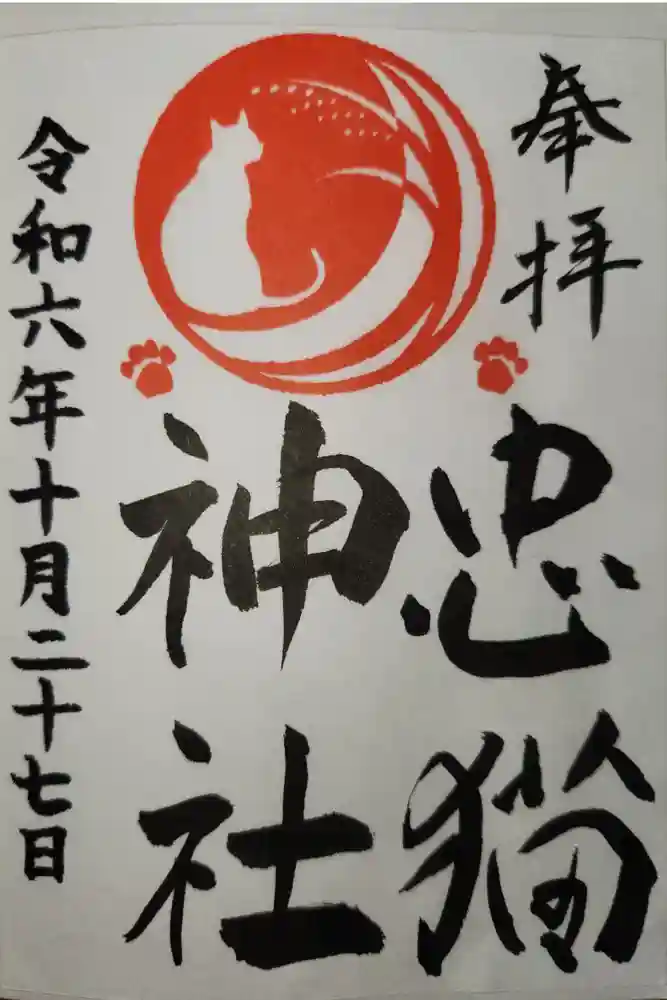 奉拝
忠猫
神社
令和六年十月二十七日